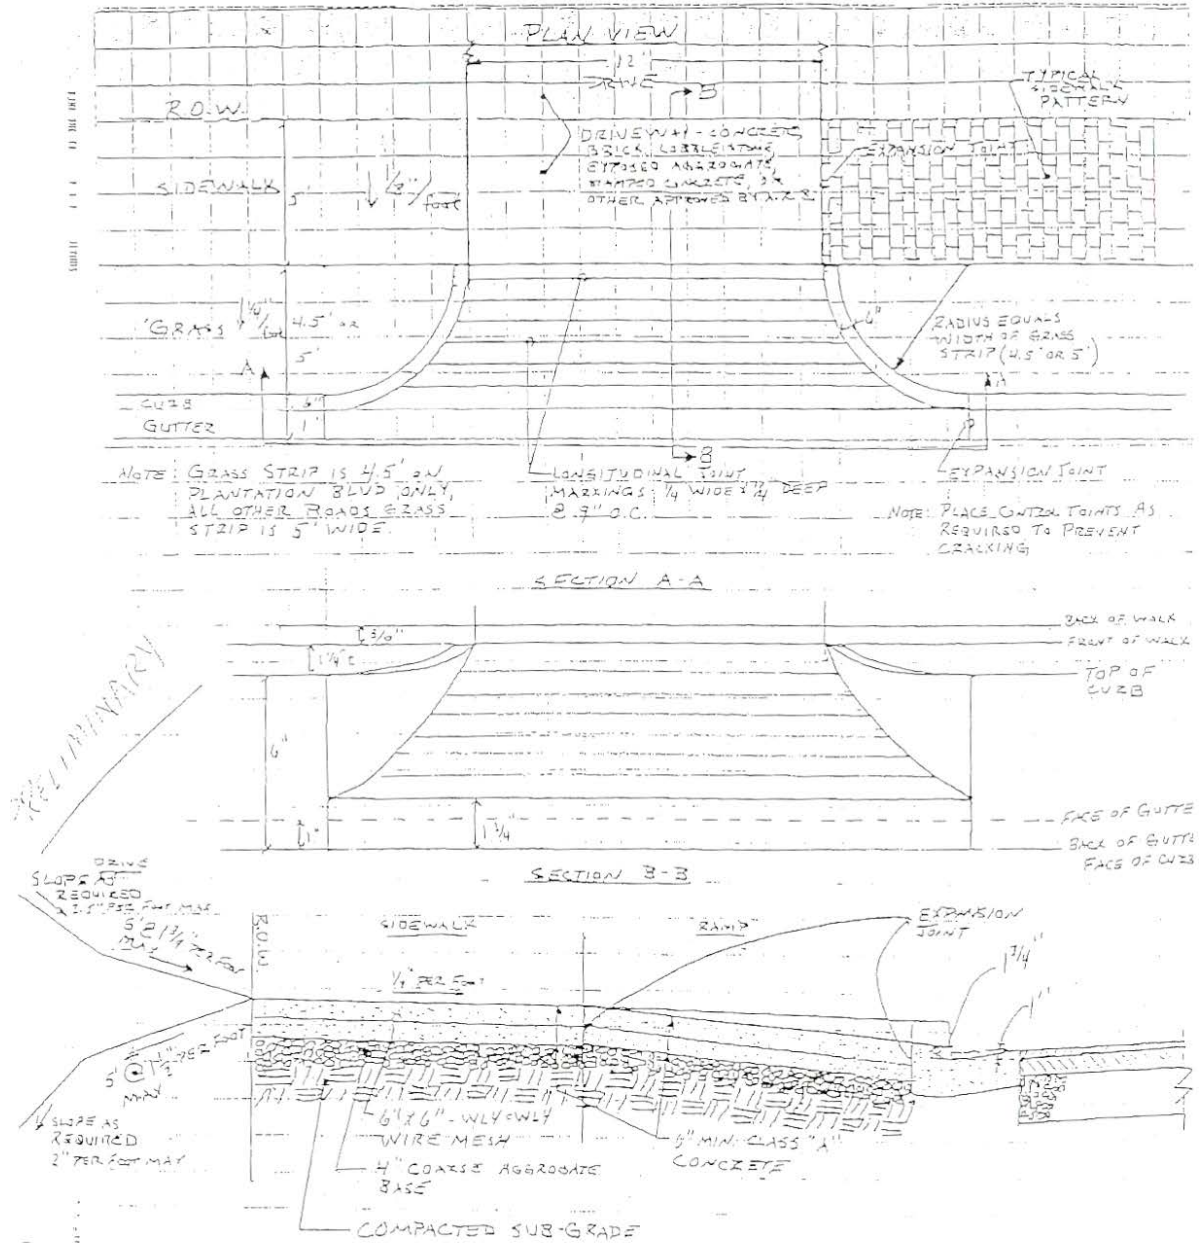 PLAN VIEW
12"
DRIVE
B
R.O.W.
TYPICAL
SIDEWALK
PATTERN
DRIVEWAY - CONCRETE,
BRICK, COBBLESTONE,
EXPOSED AGGREGATE,
STAMPED CONCRETE, OR
OTHER APPROVED BY A.R.B.
EXPANSION JOINT
SIDEWALK
5'
/foot
"GRASS"
1/4"/
foot
4.5' OR
5'
6"
RADIUS EQUALS
WIDTH OF GRASS
STRIP (4.5' OR 5')
A
A
CURB
6"
GUTTER
1'
B
NOTE: GRASS STRIP IS 4.5' ON
PLANTATION BLVD ONLY,
ALL OTHER ROADS GRASS
STRIP IS 5' WIDE.
LONGITUDINAL JOINT
MARKINGS 1/4 WIDE x 3/4 DEEP
@ 9" O.C.
EXPANSION JOINT
NOTE: PLACE CONTROL JOINTS AS
REQUIRED TO PREVENT
CRACKING
SECTION A-A
BACK OF WALK
FRONT OF WALK
1 1/4"±
TOP OF
CURB
PRELIMINARY
6"
1"
1 3/4"
FACE OF GUTTE
BACK OF GUTTE
FACE OF CURB
SECTION B-B
DRIVE
SLOPE AS
REQUIRED
2.5" PER FOOT MAX
5' @ 1 3/4" PER FOOT
MAX
R.O.W.
SIDEWALK
RAMP
EXPANSION
JOINT
1 3/4"
1"
1/4" PER FOOT
5' @ 1 1/2" PER FOOT
MAX
SLOPE AS
REQUIRED
2" PER FOOT MAX
6"X6" - W1.4xW1.4
WIRE MESH
6" MIN. CLASS "A"
CONCRETE
4" COARSE AGGREGATE
BASE
COMPACTED SUB-GRADE